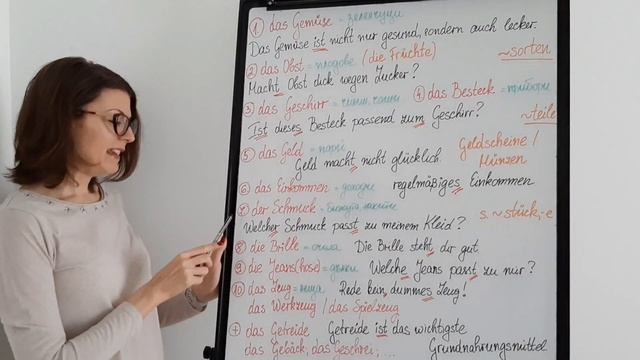 ① das Gemüse = зеленчуци
Das Gemüse ist nicht nur gesund, sondern auch lecker.
② das Obst = плодове (die Früchte) ~sorten
Macht Obst dick wegen Zucker?
③ das Geschirr = чинии, чаши ④ das Besteck = прибори
Ist dieses Besteck passend zum Geschirr? ~teile
⑤ das Geld = пари Geldscheine /
Geld macht nicht glücklich. Münzen
⑥ das Einkommen = доходи regelmäßiges Einkommen
⑦ der Schmuck = бижута, s. ~stück, -e
Welcher Schmuck passt zu meinem Kleid?
⑧ die Brille = очила Die Brille steht dir gut
⑨ die Jeans(hose) = дънки Welche Jeans passt zu mir?
⑩ das Zeug = неща Rede kein dummes Zeug!
das Werkzeug / das Spielzeug
+ das Getreide Getreide ist das wichtigste
das Gebäck, das Geschrei, ... Grundnahrungsmittel